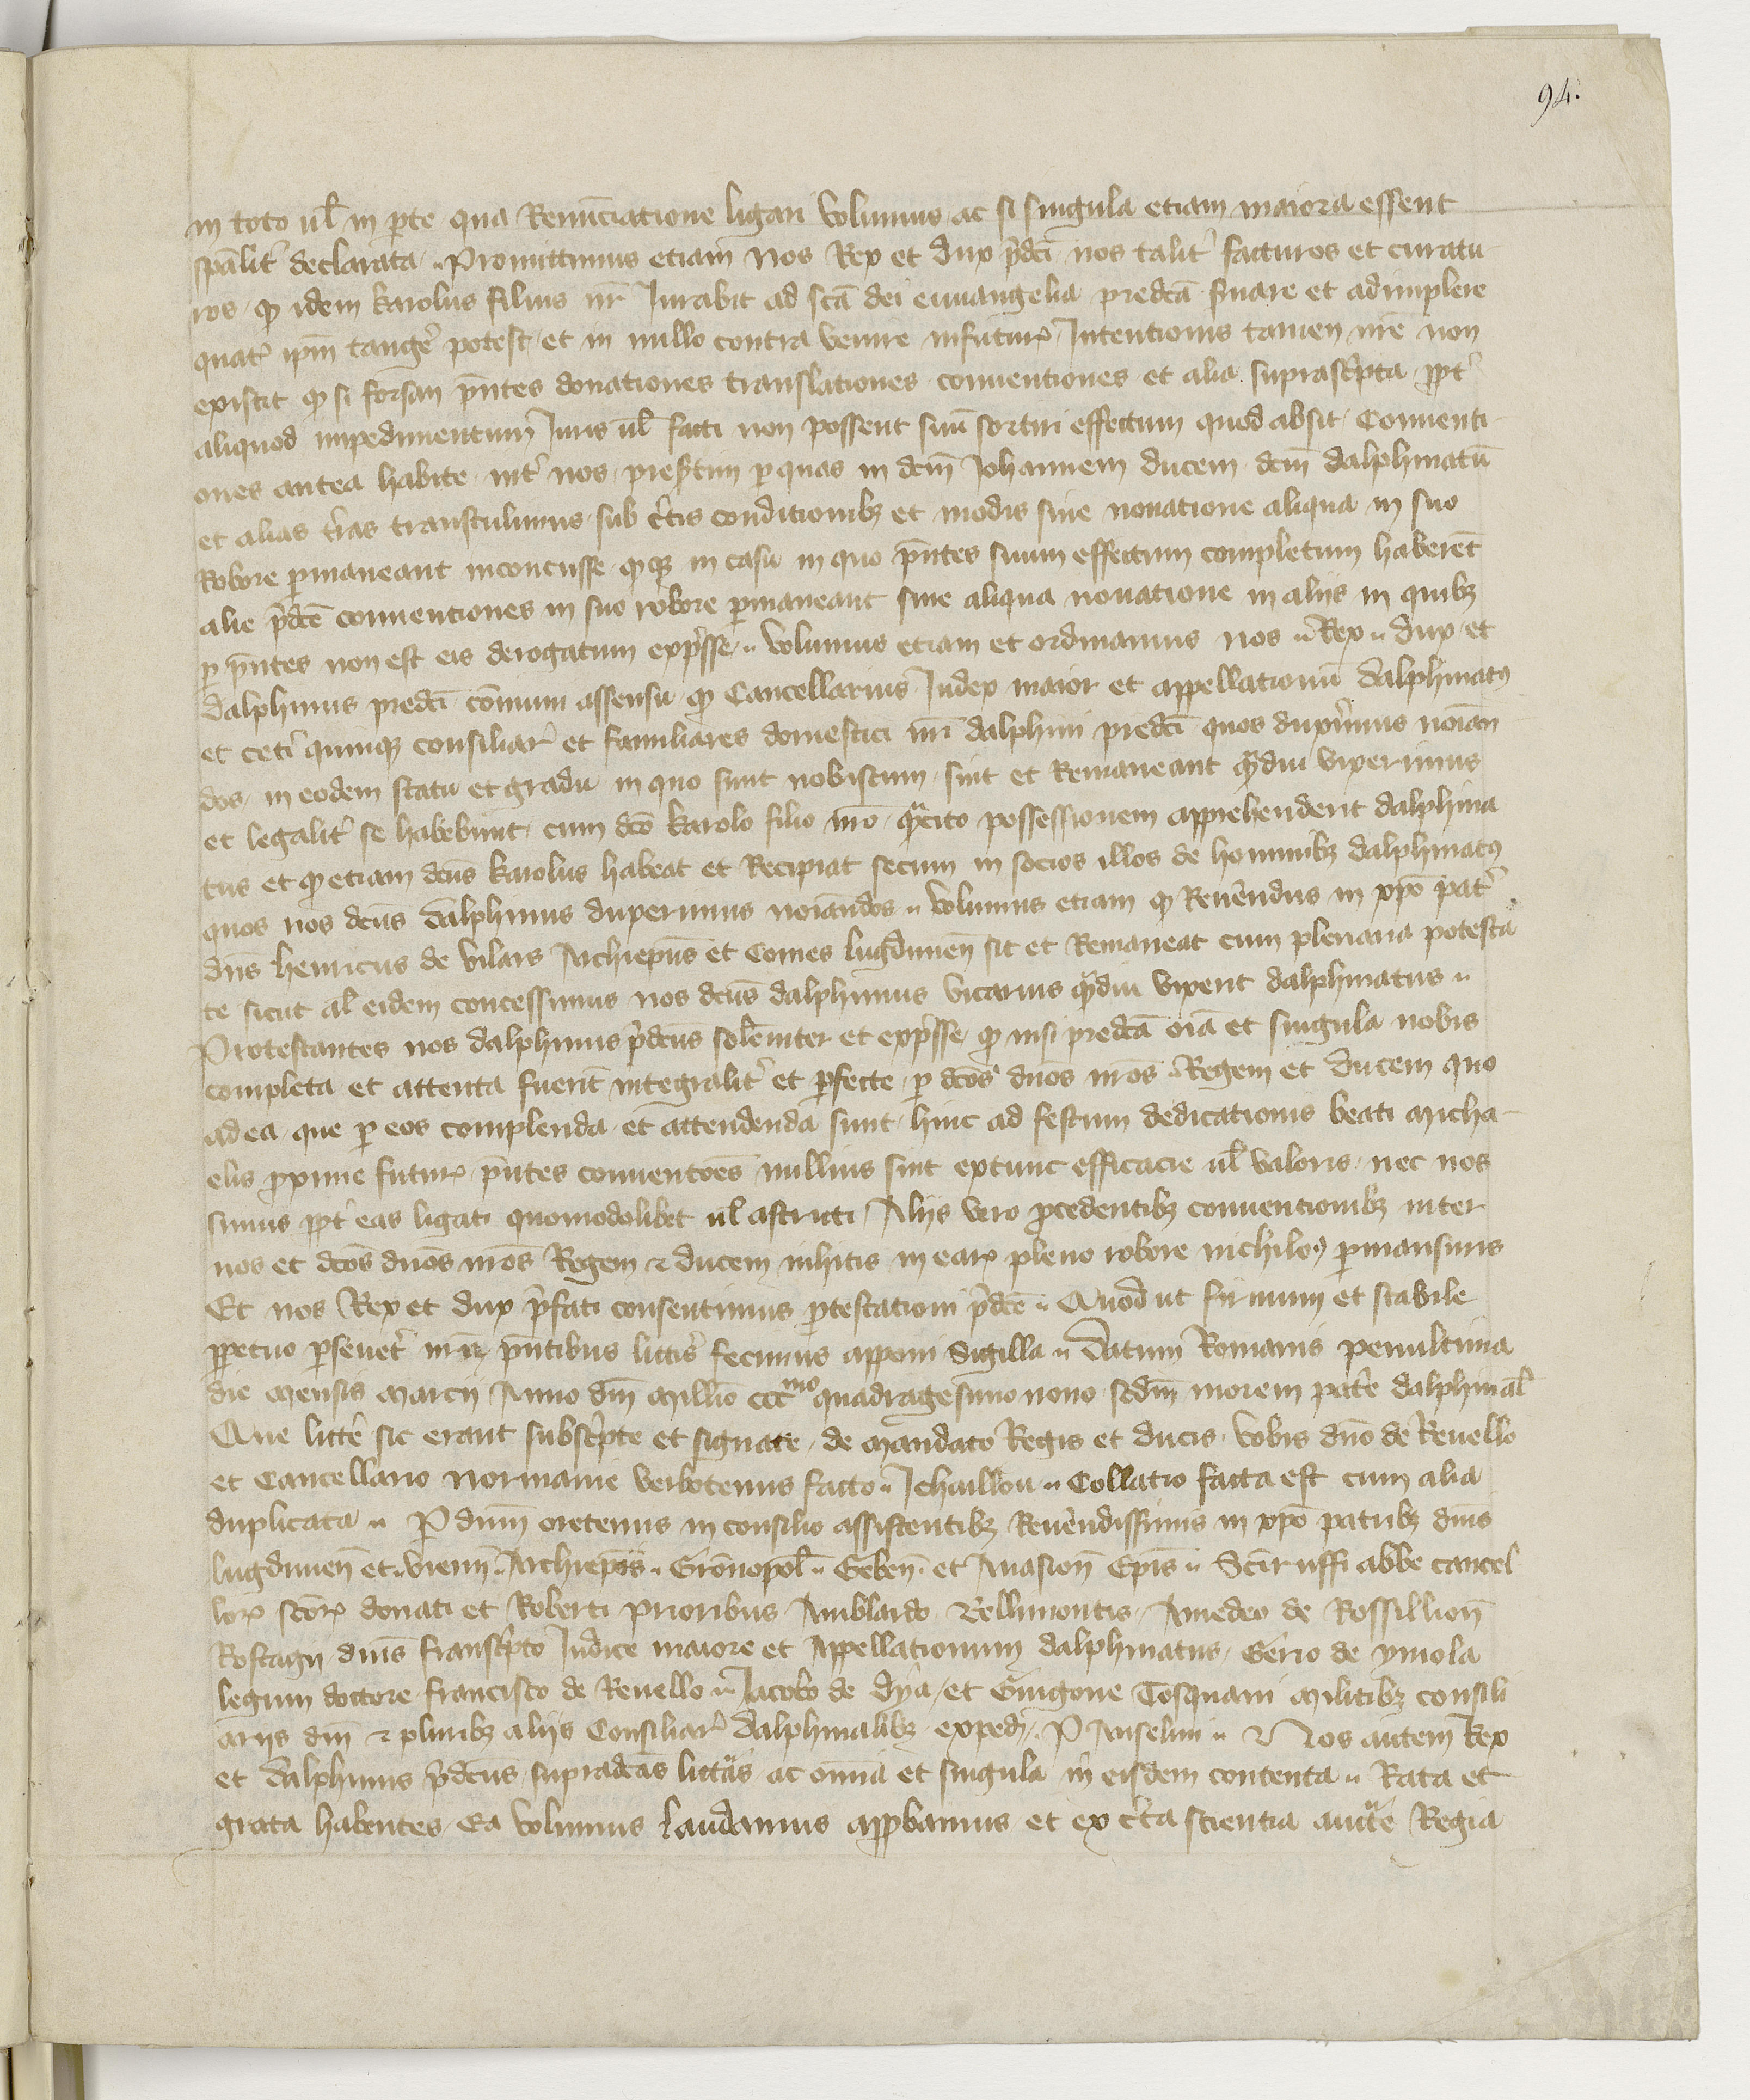 94.
in toto ul̄ in ꝑte qua Renūciatione ligari volumus ac si singula etiam maiora essent
sp̄alit̾ declarata ·· Promittimus etiam nos Rex et dux p̄dc̄i nos talit̾ facturos et curatu
ros ꝙ idem karolus filius nr̄ Iurabit ad sc̄a dei euuangelia predc̄a ẜuare et adimplere
quatꝰ ip̄m tang̾e potest et in nullo contra venire infuturꝝ Intentionis tamen nr̄e non
existit ꝙ si forsan p̄ntes donationes translationes conuentiones et alia suprasc̾pta ꝓpt̾
aliquod impedimentum Iuris ul̄ facti non possent suū sortiri effectum quod absit Conuenti
ones antea habite int̾ nos preẜtim ꝑ quas in dc̄m Iohannem ducem dc̄m dalphinatū
et alias t̾ras transtulimus sub c̾tis conditionibꝫ et modis sine nouatione aliqua in suo
Robore ꝑmaneant inconcusse ꝙꝫ in casu in quo p̄ntes suum effectum completum haberēt
alie p̄dc̄e conuentiones in suo robore ꝑmaneant sine aliqua nouatione in aliis in quibꝫ
ꝑ p̄ntes non est eis derogatum exp̄sse ·· volumus etiam et ordinamus nos ·· Rex ·· dux et
dalphinus predc̄i cōmuni assensu ꝙ Cancellarius Iudex maior et appellationū dalphinatꝰ
et cet̾i quinqꝫ consiliar̾ et familiares domestici nr̄i dalphini predc̄i quos dux̾imus noīan
dos in eodem statu et gradu in quo sunt nobiscum sint et Remaneant qᵃ̄diu vixerimus
et legalit̾ se habebunt cum dc̄o karolo filio nr̄o qᵃ̄cito possessionem apprehenderit dalphina
tus et ꝙ etiam dc̄us karolus habeat et Recipiat secum in socios illos de hominibꝫ dalphinatꝰ
quos nos dc̄us dalphinus duxerimus noīandos ·· volumus etiam ꝙ Reu̾endus in xp̄o pat̾
dn̄s henricus de vilars Archiep̄us et Comes lugdunen̄ sit et Remaneat cum plenaria potesta
te sicut al̄ eidem concessimus nos dc̄us dalphinus vicarius qᵃ̄diu vixerit dalphinatus ··
Protestantes nos dalphinus p̄dc̄us solēniter et exp̄sse ꝙ nisi predc̄a oīa et singula nobis
completa et attenta fuerīt integralit̾ et ꝑfecte ꝑ dc̄os dn̄os nr̄os ·· Regem et ducem quo
ad ea que ꝑ eos complenda et attendenda sunt hinc ad festum dedicationis beati micha
elis ꝓxime futurꝝ p̄ntes conuentōes nullius sint extunc efficacie ul̄ valoris nec nos
simus ꝓpt̾ eas ligati quomodolibet ul̄ astricti Aliis vero p̄cedentibꝫ conuentionibꝫ inter
nos et dc̄os dn̄os nr̄os Regem ⁊ ducem inhitis in earꝝ pleno robore nichiloꝰ ꝑmansuris
Et nos Rex et dux p̄fati consentimus ꝓtestationi p̄dc̄e ·· Quod ut firmum et stabile
ꝑpetuo ꝑseuet̾ nr̄a p̄ntibus litt̾is fecimus apponi sigilla ·· Datum Romanis penultima
die mensis marcii Anno dn̄i mill̄io cccᵐᵒ quadragesimo nono scdm̄ morem pat̾e dalphinal̄
Que litt̾e sic erant subsc̾pte et signate de mandato Regis et ducis vobis dn̄o de Reuello
et Cancellario normanie verbotenus facto ·· Ichaillou ·· Collatio facta est cum alia
duplicata ·· P dn̄m oretenus in consilio assistentibꝫ Reu̾endissimis in xp̄o patribꝫ dn̄is
lugdunen̄ et ·· vienn̄ ·· Archiep̄is ·· Gronopol̄ ·· Geben̄ et Auasion̄ Ep̄is ·· Sc̄i ruffi abbe cancel
lorꝝ sc̄orꝝ donati et Roberti prioribus Amblardo Bellimontis Amedeo de Rossillion̄
Rostagn̄ dn̄is fransc̾pto Iudice maiore et Appellationum dalphinatus Gerio de ymola
legum doctore francisco de Reuello ·· Iacobo de dya et Guigone Tosquani militibꝫ consili
ariis dn̄i ⁊ pluribꝫ aliis Consiliar̾ dalphinalibꝫ exped̾ ·· P Anselmi ·· ⁊ Nos autem Rex
et dalphinus p̄dc̄us supradc̄as litt̾as ac omnia et singula in eisdem contenta ·· Rata et
grata habentes Ea volumus laudamus apꝓbamus et ex c̾ta scientia auct̄e Regia